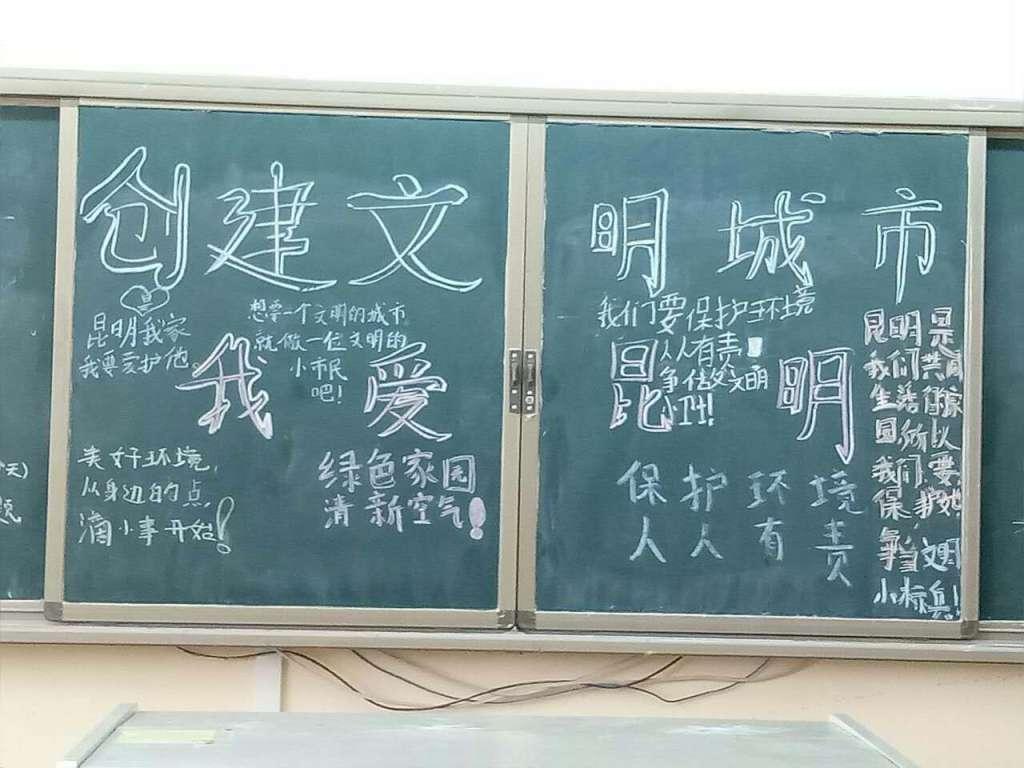 创建文明城市
我爱昆明
是
昆明我家
我要爱护他。
想要一个文明的城市
就做一位文明的
小市民
吧!
美好环境,
从身边的点
滴小事开始!
绿色家园
清新空气!
我们要保护环境
人人有责
争做文明
小卫!
保护环境
人人有责
昆明是
我们共同
生活的家
园,所以
我们要
保护她
争当文明
小标兵!
天)
题